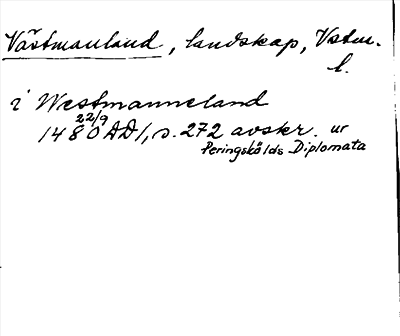 Västmanland, landskap, Vstm.
l.
i Westmanneland
22/9
1480 AD1, s. 272 avskr. ur
Peringskölds Diplomata